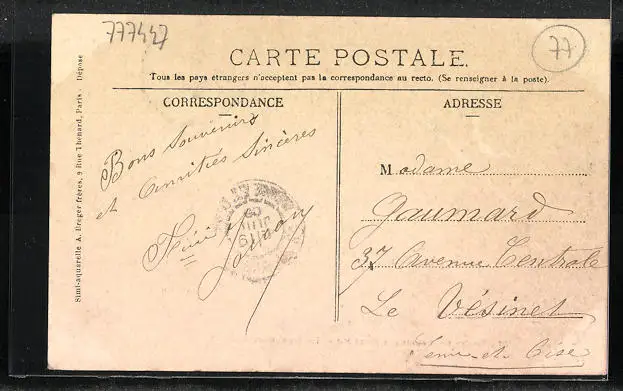 777427
77
CARTE POSTALE.
Tous les pays étrangers n'acceptent pas la correspondance au recto. (Se renseigner à la poste).
CORRESPONDANCE
ADRESSE
Simi-aquarelle A. Breger frères, 9 Rue Thenard, Paris - Déposé
Bons Souvenirs
et Amitiés Sincères
Madame
Gaumard
37 Avenue Centrale
Le Vésinet
Seine-et-Oise